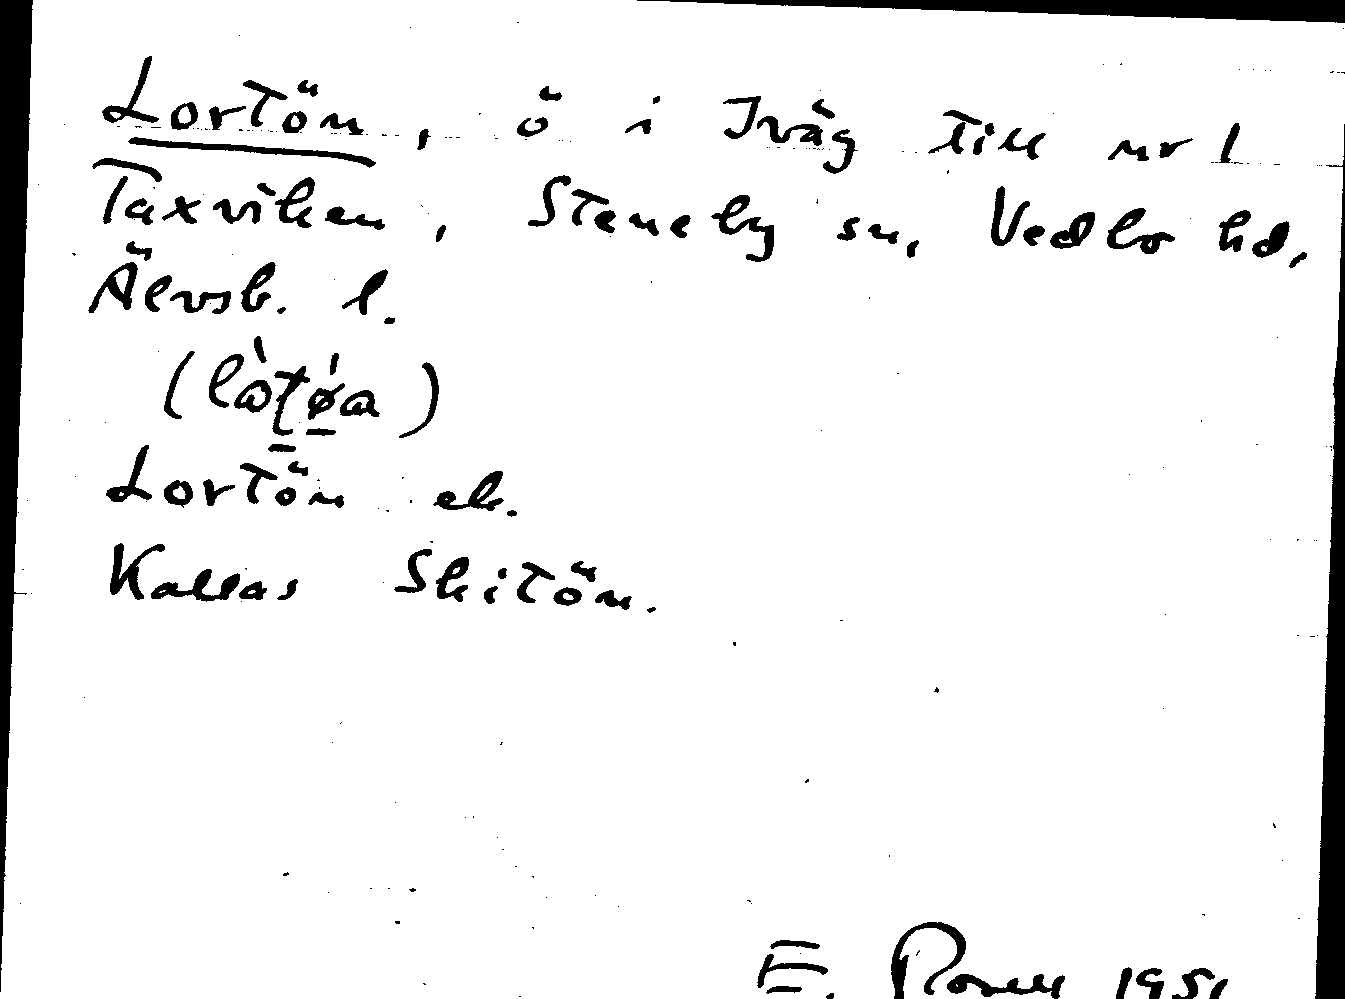 Lortön, ö i Iväg till nr 1
Taxviken, Steneby sn, Vedbo hd,
Älvsb. l.
Lortön el.
Kallas Skitön.
E. 1951